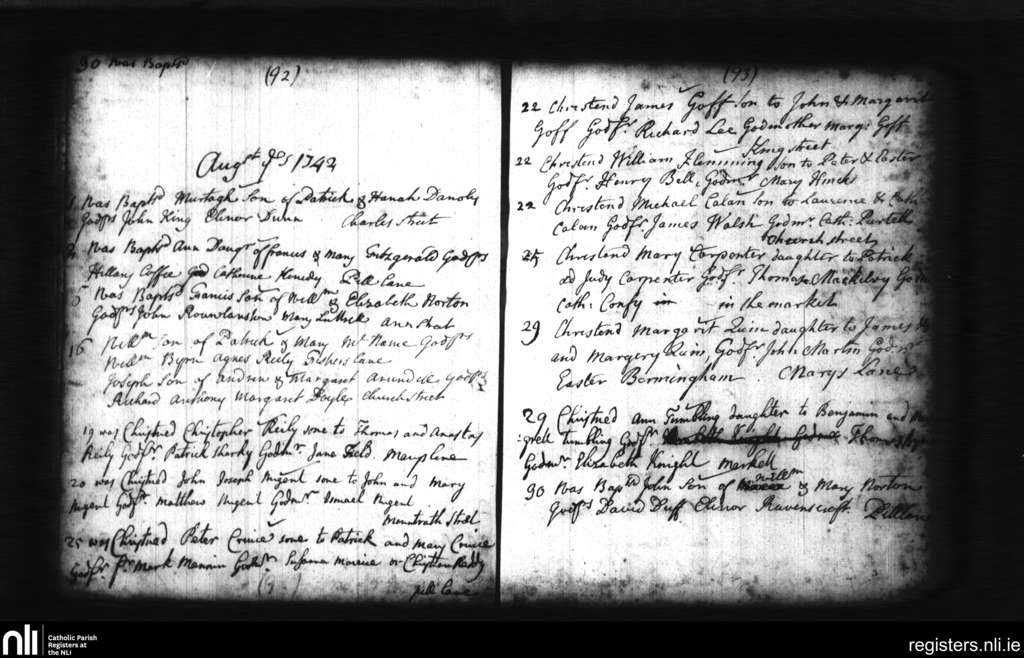 30 Was Baptd
(92)
Augst ye 1 1742
1 Was Baptd Murtagh Son of Patrick & Hanah
Godfrs John King Elinor Dunn Charles Street
Was Baptd Ann Daugr of francis & Mary Fitzgerald Godfrs
Hillary Coffee God Catherine Kenedy Pill Lane
5 Was Baptd Francis Son of Willm & Elizabeth Norton
Godfrs John Mary Luttrell
16 Willm Son of Patrick & Mary Mc Name Godfrs
Willm Byrn Agnes Reily Fishers Lane
Joseph Son of Andrew & Margaret Arundell Godfrs
Richard Anthony Margaret Doyle Church Street
19 was Christned Christopher Reily sone to Thomas and Anastas
Reily Godfr Patrick Sharky Godmr Jane Field. Marys lane
20 was Christned John Joseph Nugent sone to John and Mary
Nugent Godfr Matthew Nugent Godmr Nugent
Mountrath Street
25 was Christned Peter Cruice sone to Patrick and Mary Cruice
Godfr Mark Godmr Susanna or
pill lane
(93)
22 Christend James Goff son to John & Margaret
Goff Godfr Richard Lee Godmother Margt Goff
King street
22 Christend William Flemming son to Peter & Easter
Godfr Henry Bell, Godmr Mary Hinck
22 Christend Michael Calan son to Laurence & Cath
Calan Godfr James Walsh Godmr Cath:
Church street
25 Christend Mary Carpenter daughter to Patrick
ad Judy Carpenter Godfr Thomas Godm
Cath: Confy in the market
29 Christend Margarit Quin daughter to James
and Margery Quin, Godfr John Martin Godmr
Easter Bermingham. Marys Lane
29 Christned Ann Tumbling daughter to Benjamin and
grett tumbling Godfr Thomas
Godmr Elizabeth Knight Markett
30 Was Baptd John Son of Willm & Mary Norton
Godfrs David Duff Elinor Ravenscroft Pill lane
nli
Catholic Parish
Registers at
the NLI
registers.nli.ie